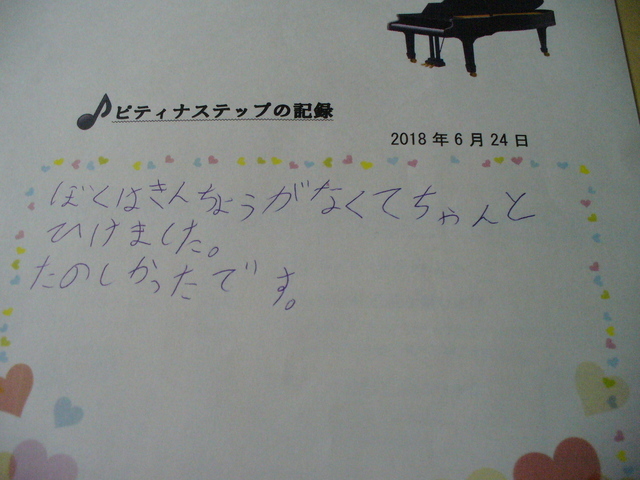 ピティナステップの記録
2018年6月24日
ぼくはきんちょうがなくてちゃんと
ひけました。
たのしかったです。